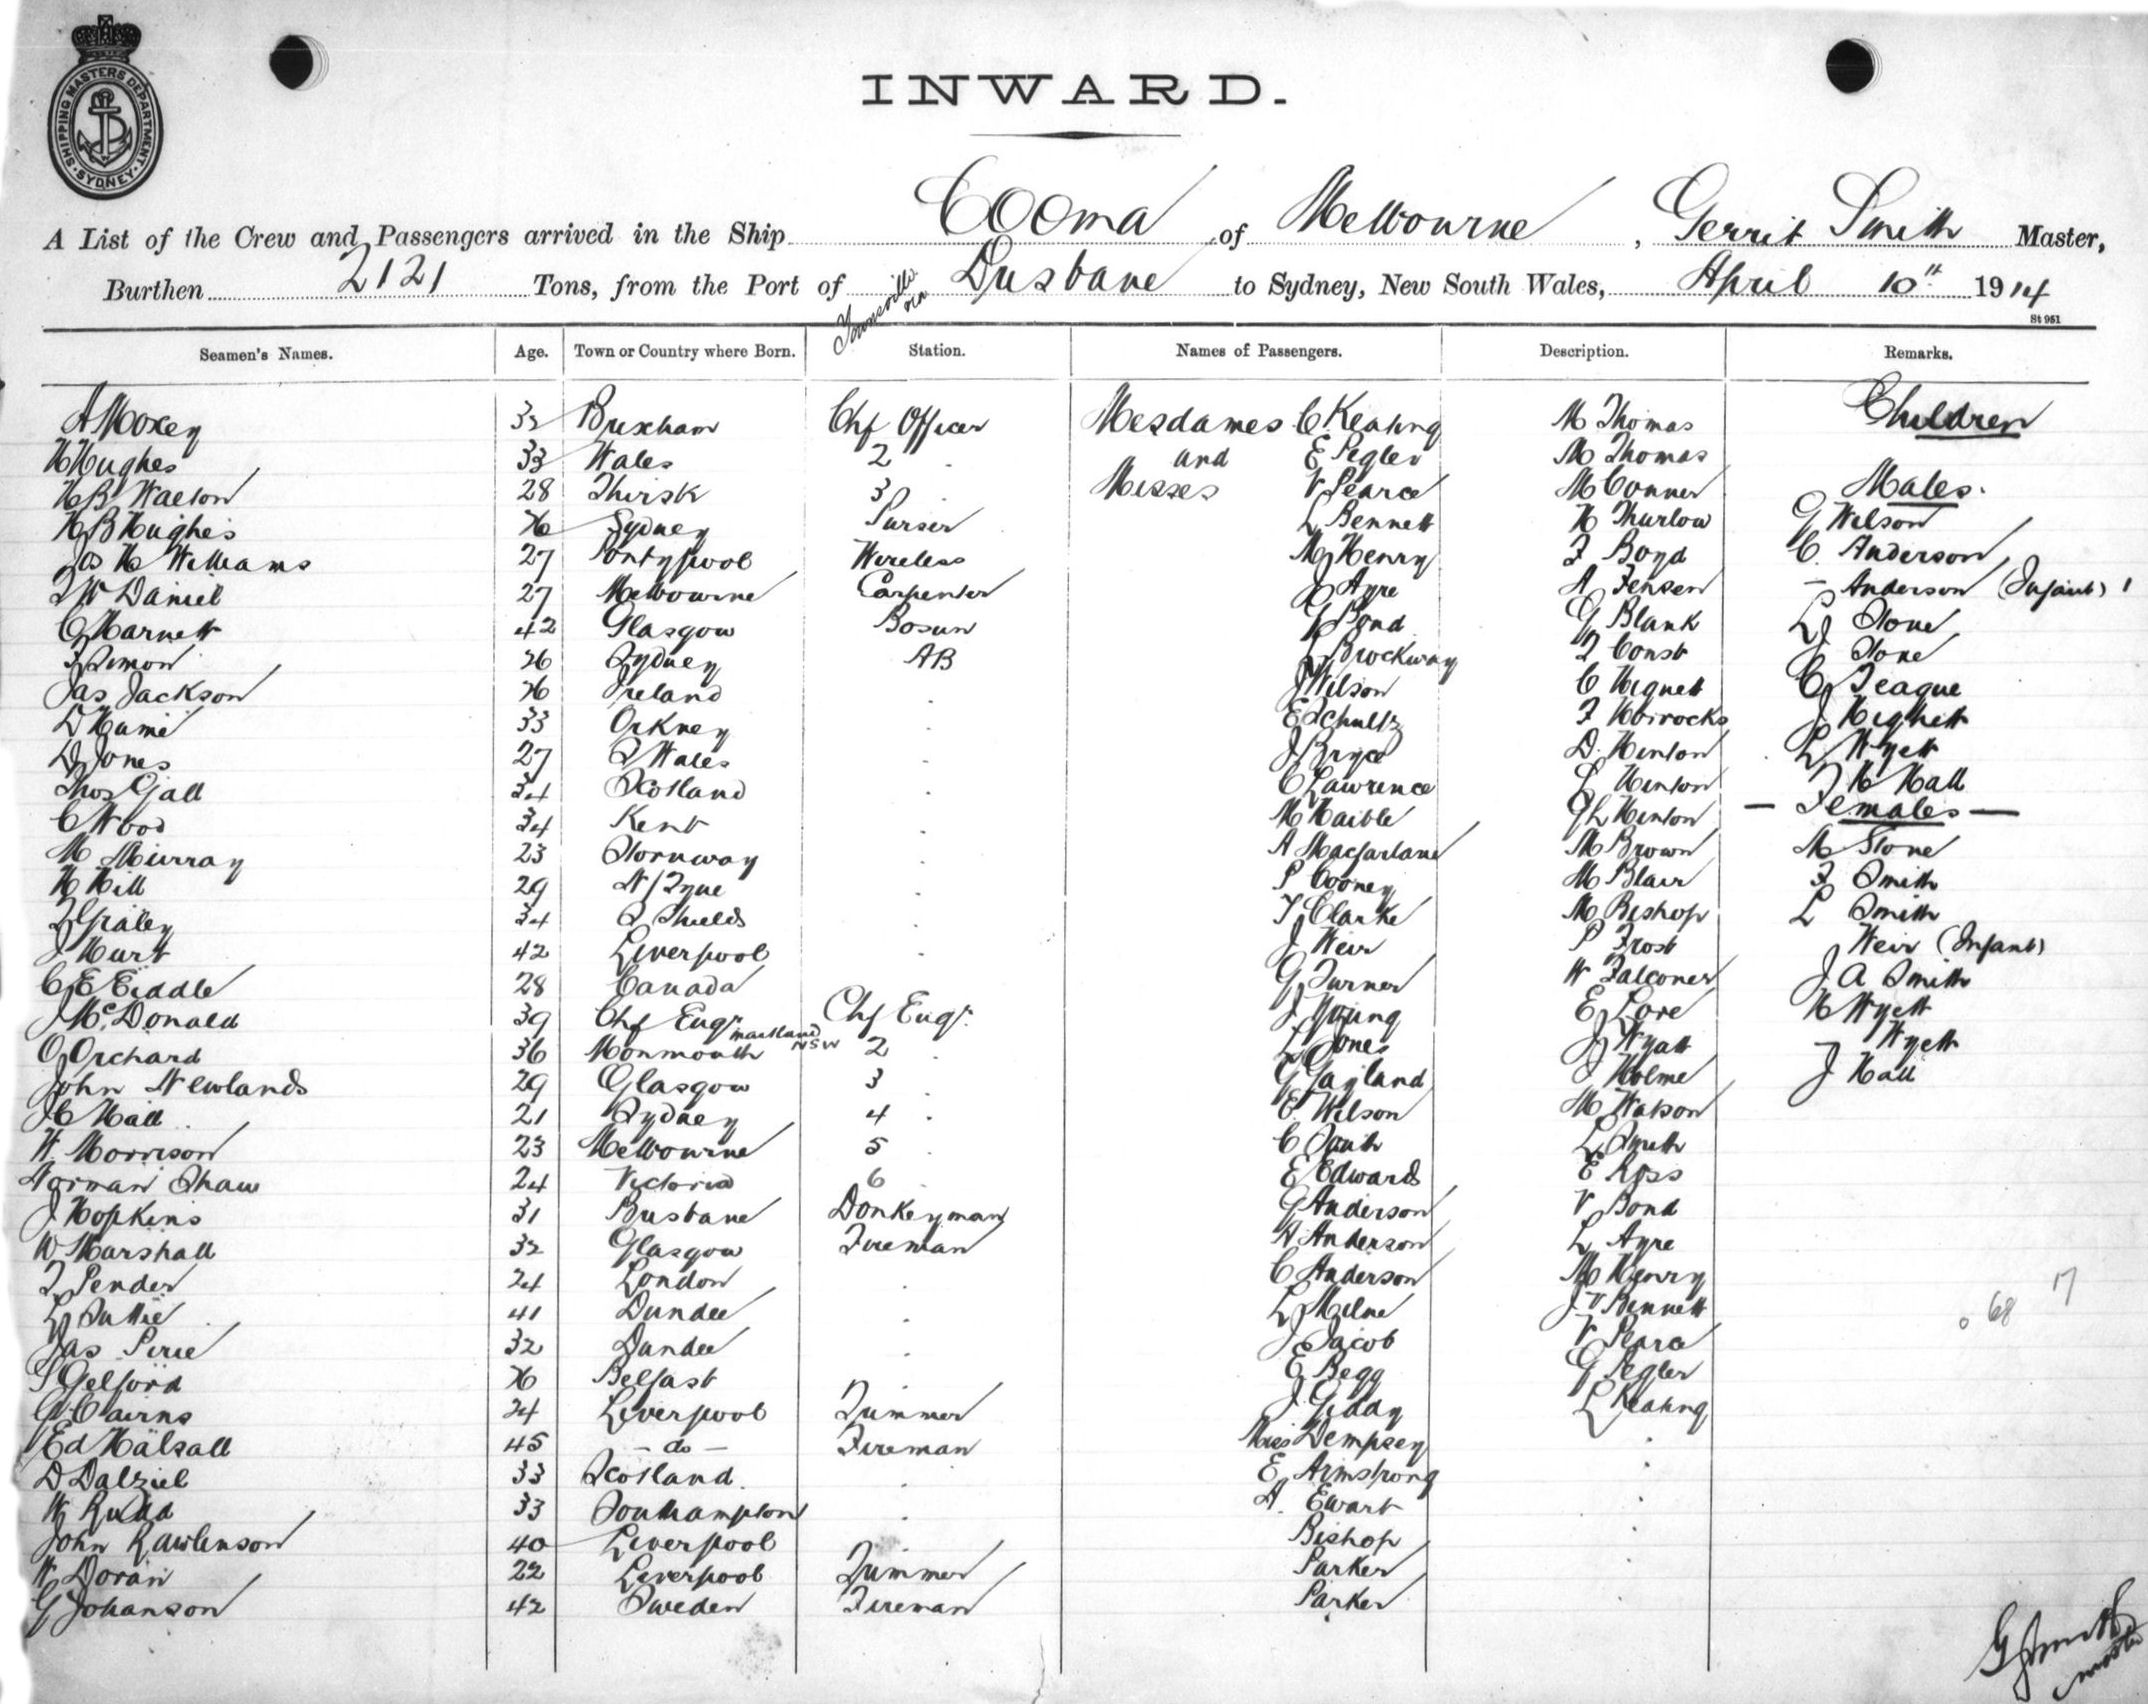 SHIPPING MASTERS DEPARTMENT
SYDNEY
INWARD.
A List of the Crew and Passengers arrived in the Ship Cooma of Melbourne, Gerrit Smith Master,
Burthen 2121 Tons, from the Port of Townsville via Brisbane to Sydney, New South Wales, April 10th 1914
St 951
Seamen's Names. Age. Town or Country where Born. Station. Names of Passengers. Description. Remarks.
A Moxey 32 Brixham Chf Officer Mesdames C Keating M Thomas Children
H Hughes 33 Wales 2 and E Pegler M Thomas
H B Walton 28 Thirsk 3 Misses V Pearce M Conner Males.
H B Hughes 26 Sydney Purser L Bennett H Thurlow G Wilson
Jas H Williams 27 Pontypool Wireless M Henry F Boyd C. Anderson
W Daniel 27 Melbourne Carpenter Ayre A Jensen - Anderson (Infant) 1
C Harnett 42 Glasgow Bosun Bond G Blank L Stone
Simon 26 Sydney AB L Brockway Const J Stone
Jas Jackson 26 Ireland J Wilson C Hignett C Teague
D Hume 33 Orkney E Schultz F Horrocks J Highett
D Jones 27 S Wales J Bryce D. Hinton L Wyett
Thos Gall 34 Scotland C Lawrence S Hinton F H Hall
C Wood 34 Kent M Maible G L Hinton - Females -
M Murray 23 Stornway A Macfarlane M Brown M Stone
H Hill 29 N/Tyne P Cooney M Blair F Smith
Graley 34 S Shields T Clarke M Bishop L Smith
J Hurt 42 Liverpool J Weir P Frost Weir (Infant)
C E Eiddle 28 Canada G Turner W Falconer J A Smith
J McDonald 39 Chf Engr Maitland NSW Chf Engr J Young E Love H Wyett
O Orchard 36 Monmouth 2 L Jones J Wyatt - Wyett
John Newlands 29 Glasgow 3 G Gayland J Holme J Hall
C Hall 21 Sydney 4 E Wilson M Watson
W. Morrison 23 Melbourne 5 C Smith L Smith
Norman Shaw 24 Victoria 6 E Edwards E Ross
J Hopkins 31 Brisbane Donkeyman G Anderson V Bond
W Marshall 32 Glasgow Fireman A Anderson L Ayre
Pender 24 London C Anderson M Henry
L Tuttie 41 Dundee L Milne J V Bennett 68 17
Jas Pirie 32 Dundee J Jacob V Pearce
S Gelford 26 Belfast E Begg G Pegler
G Cairns 24 Liverpool Trimmer J Giddy L Keating
Ed Halsall 45 - do - Fireman Miss Dempsey
D Dalziel 33 Scotland E Armstrong
W Rudd 33 Southampton A. Ewart
John Rawlinson 40 Liverpool Bishop
W Doran 22 Liverpool Trimmer Parker
G Johanson 42 Sweden Fireman Parker
G Smith
Master